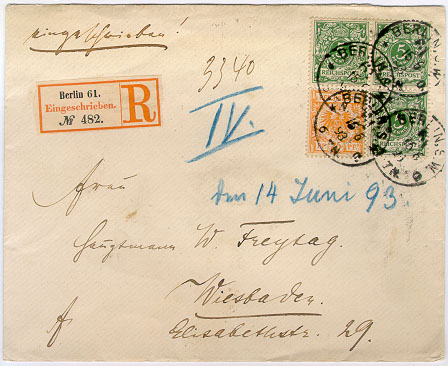 eingeschrieben!
3340
Berlin 61.
Eingeschrieben.
№ 482.
R
IV.
5
REICHSPOST
5
REICHSPOST
REICHSPOST
BERLIN, S.W.
BERLIN, S.W.
BERLIN, S.W.
den 14 Juni 93
Frau
Hauptmann W. Freytag.
Wiesbaden.
Elisabethstr. 29.